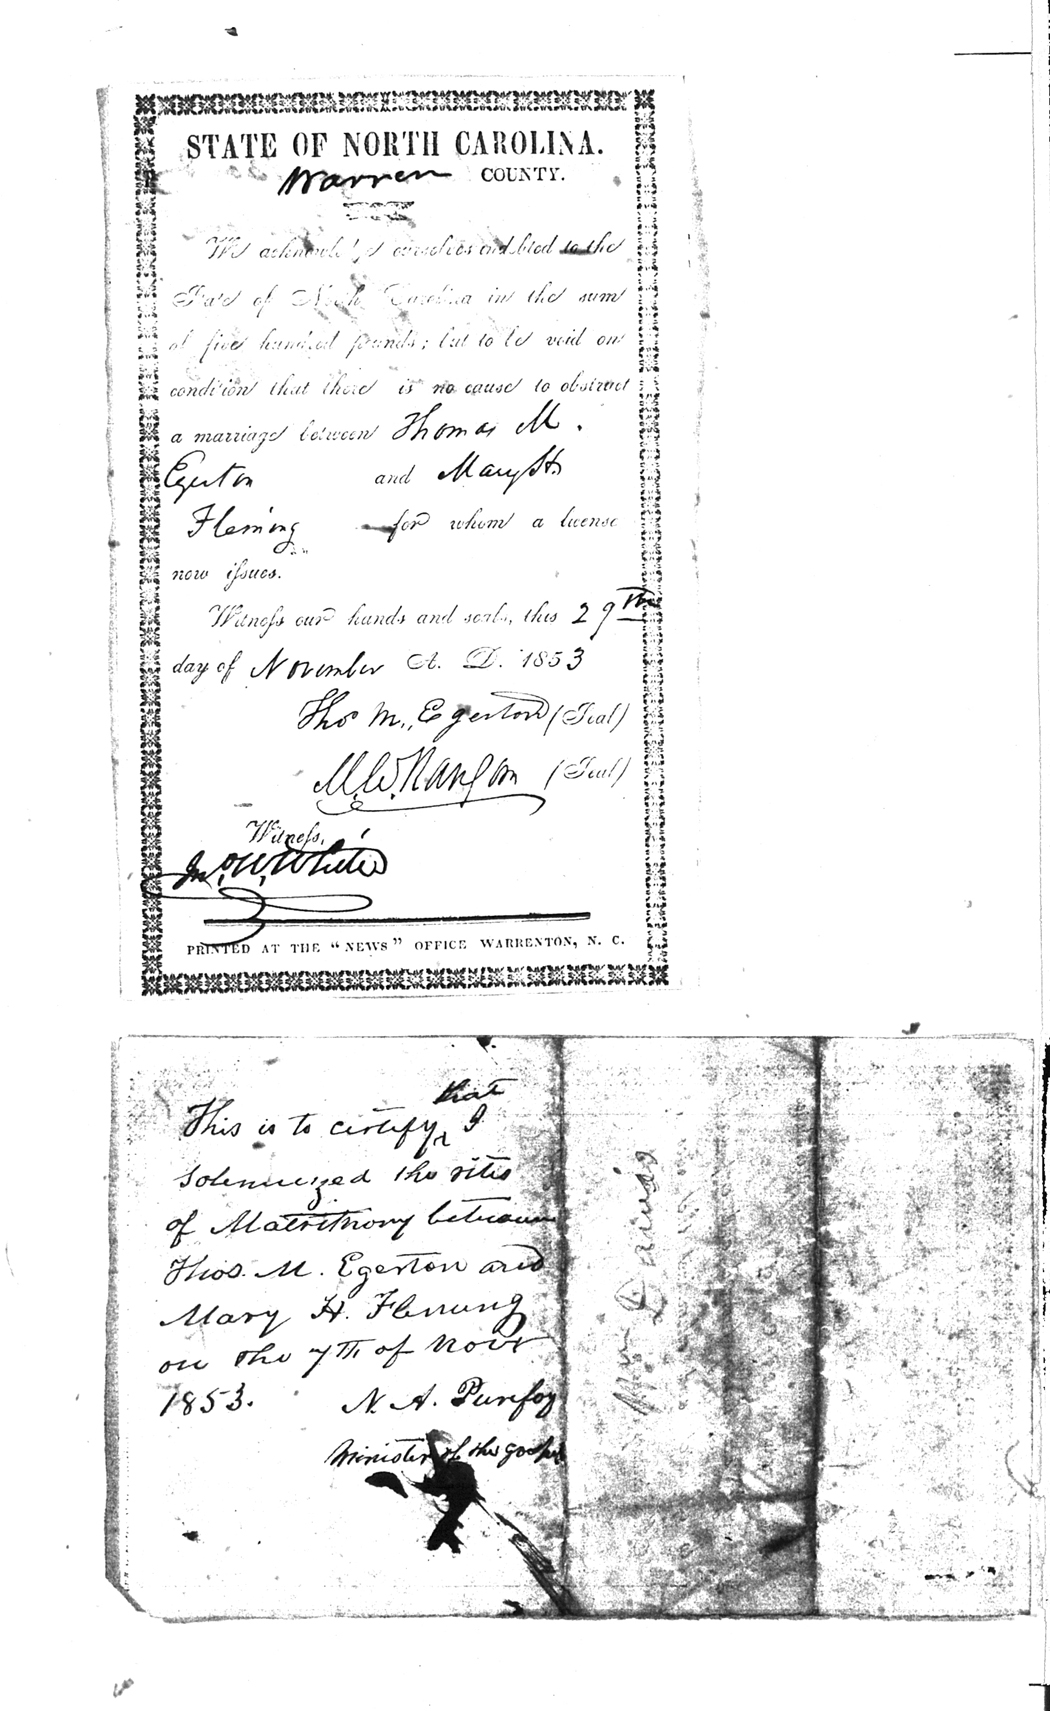 STATE OF NORTH CAROLINA.
Warren COUNTY.
We acknowledge ourselves indebted to the
State of North Carolina in the sum
of five hundred pounds; but to be void on
condition that there is no cause to obstruct
a marriage between Thomas M.
Egerton and Mary H.
Fleming for whom a license
now issues.
Witness our hands and seals, this 29th
day of November A. D. 1853
Thos M. Egerton (Seal)
M. W. Ransom (Seal)
Witness,
Jno. W. White
PRINTED AT THE "NEWS" OFFICE WARRENTON, N. C.
This is to certify that I
solemnized the rites
of Matrimony between
Thos. M. Egerton and
Mary H. Fleming
on the 7th of Novr
1853. N. A. Purefoy
Minister of the gospel